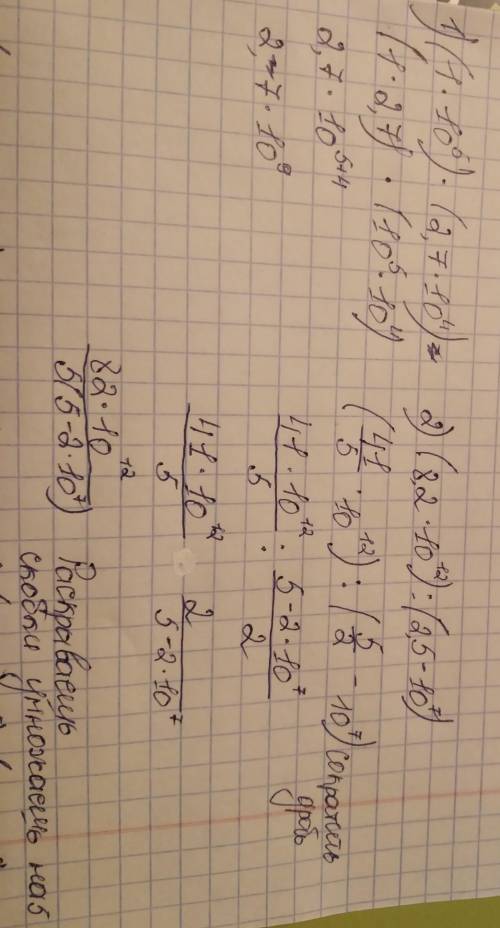 1) (1·10⁵)·(2,7·10⁴)=
(1·2,7)·(10⁵·10⁴)
2,7·10⁵⁺⁴
2,7·10⁹
2) (8,2·10¹²):(2,5-10⁷)
(41/5·10¹²):(5/2-10⁷) сократить дробь
41·10¹²/5 : 5-2·10⁷/2
41·10¹²/5 · 2/5-2·10⁷
82·10¹²/5(5-2·10⁷) Раскраваешь
скобки умножаешь на 5